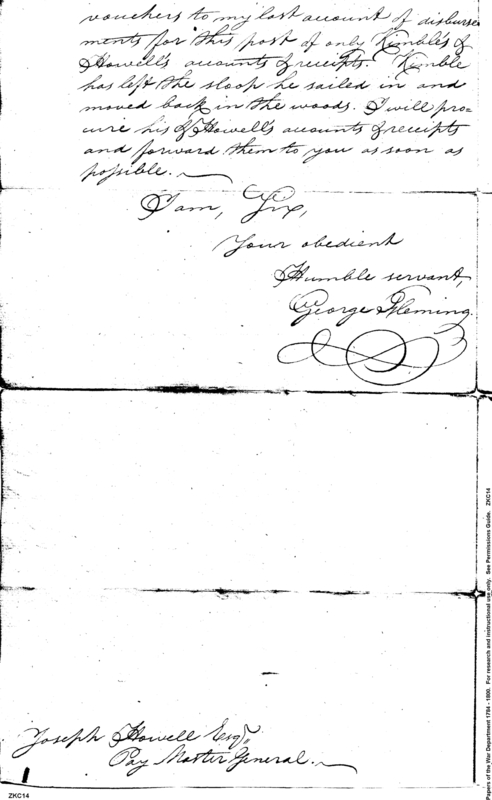 vouchers to my last account of disburse
ments for this post of only Kimble's &
Howell's accounts & receipts. Kimble
has left the sloop he sailed in and
moved back in the woods. I will pro=
cure his & Howell's accounts & receipts
and forward them to you as soon as
possible.
I am, Sir,
Your obedient
Humble servant,
George Fleming.
Joseph Howell Esqr.
Pay Master General.
ZKC14
Papers of the War Department 1784 - 1800. For research and instructional use only. See Permissions Guide. ZKC14